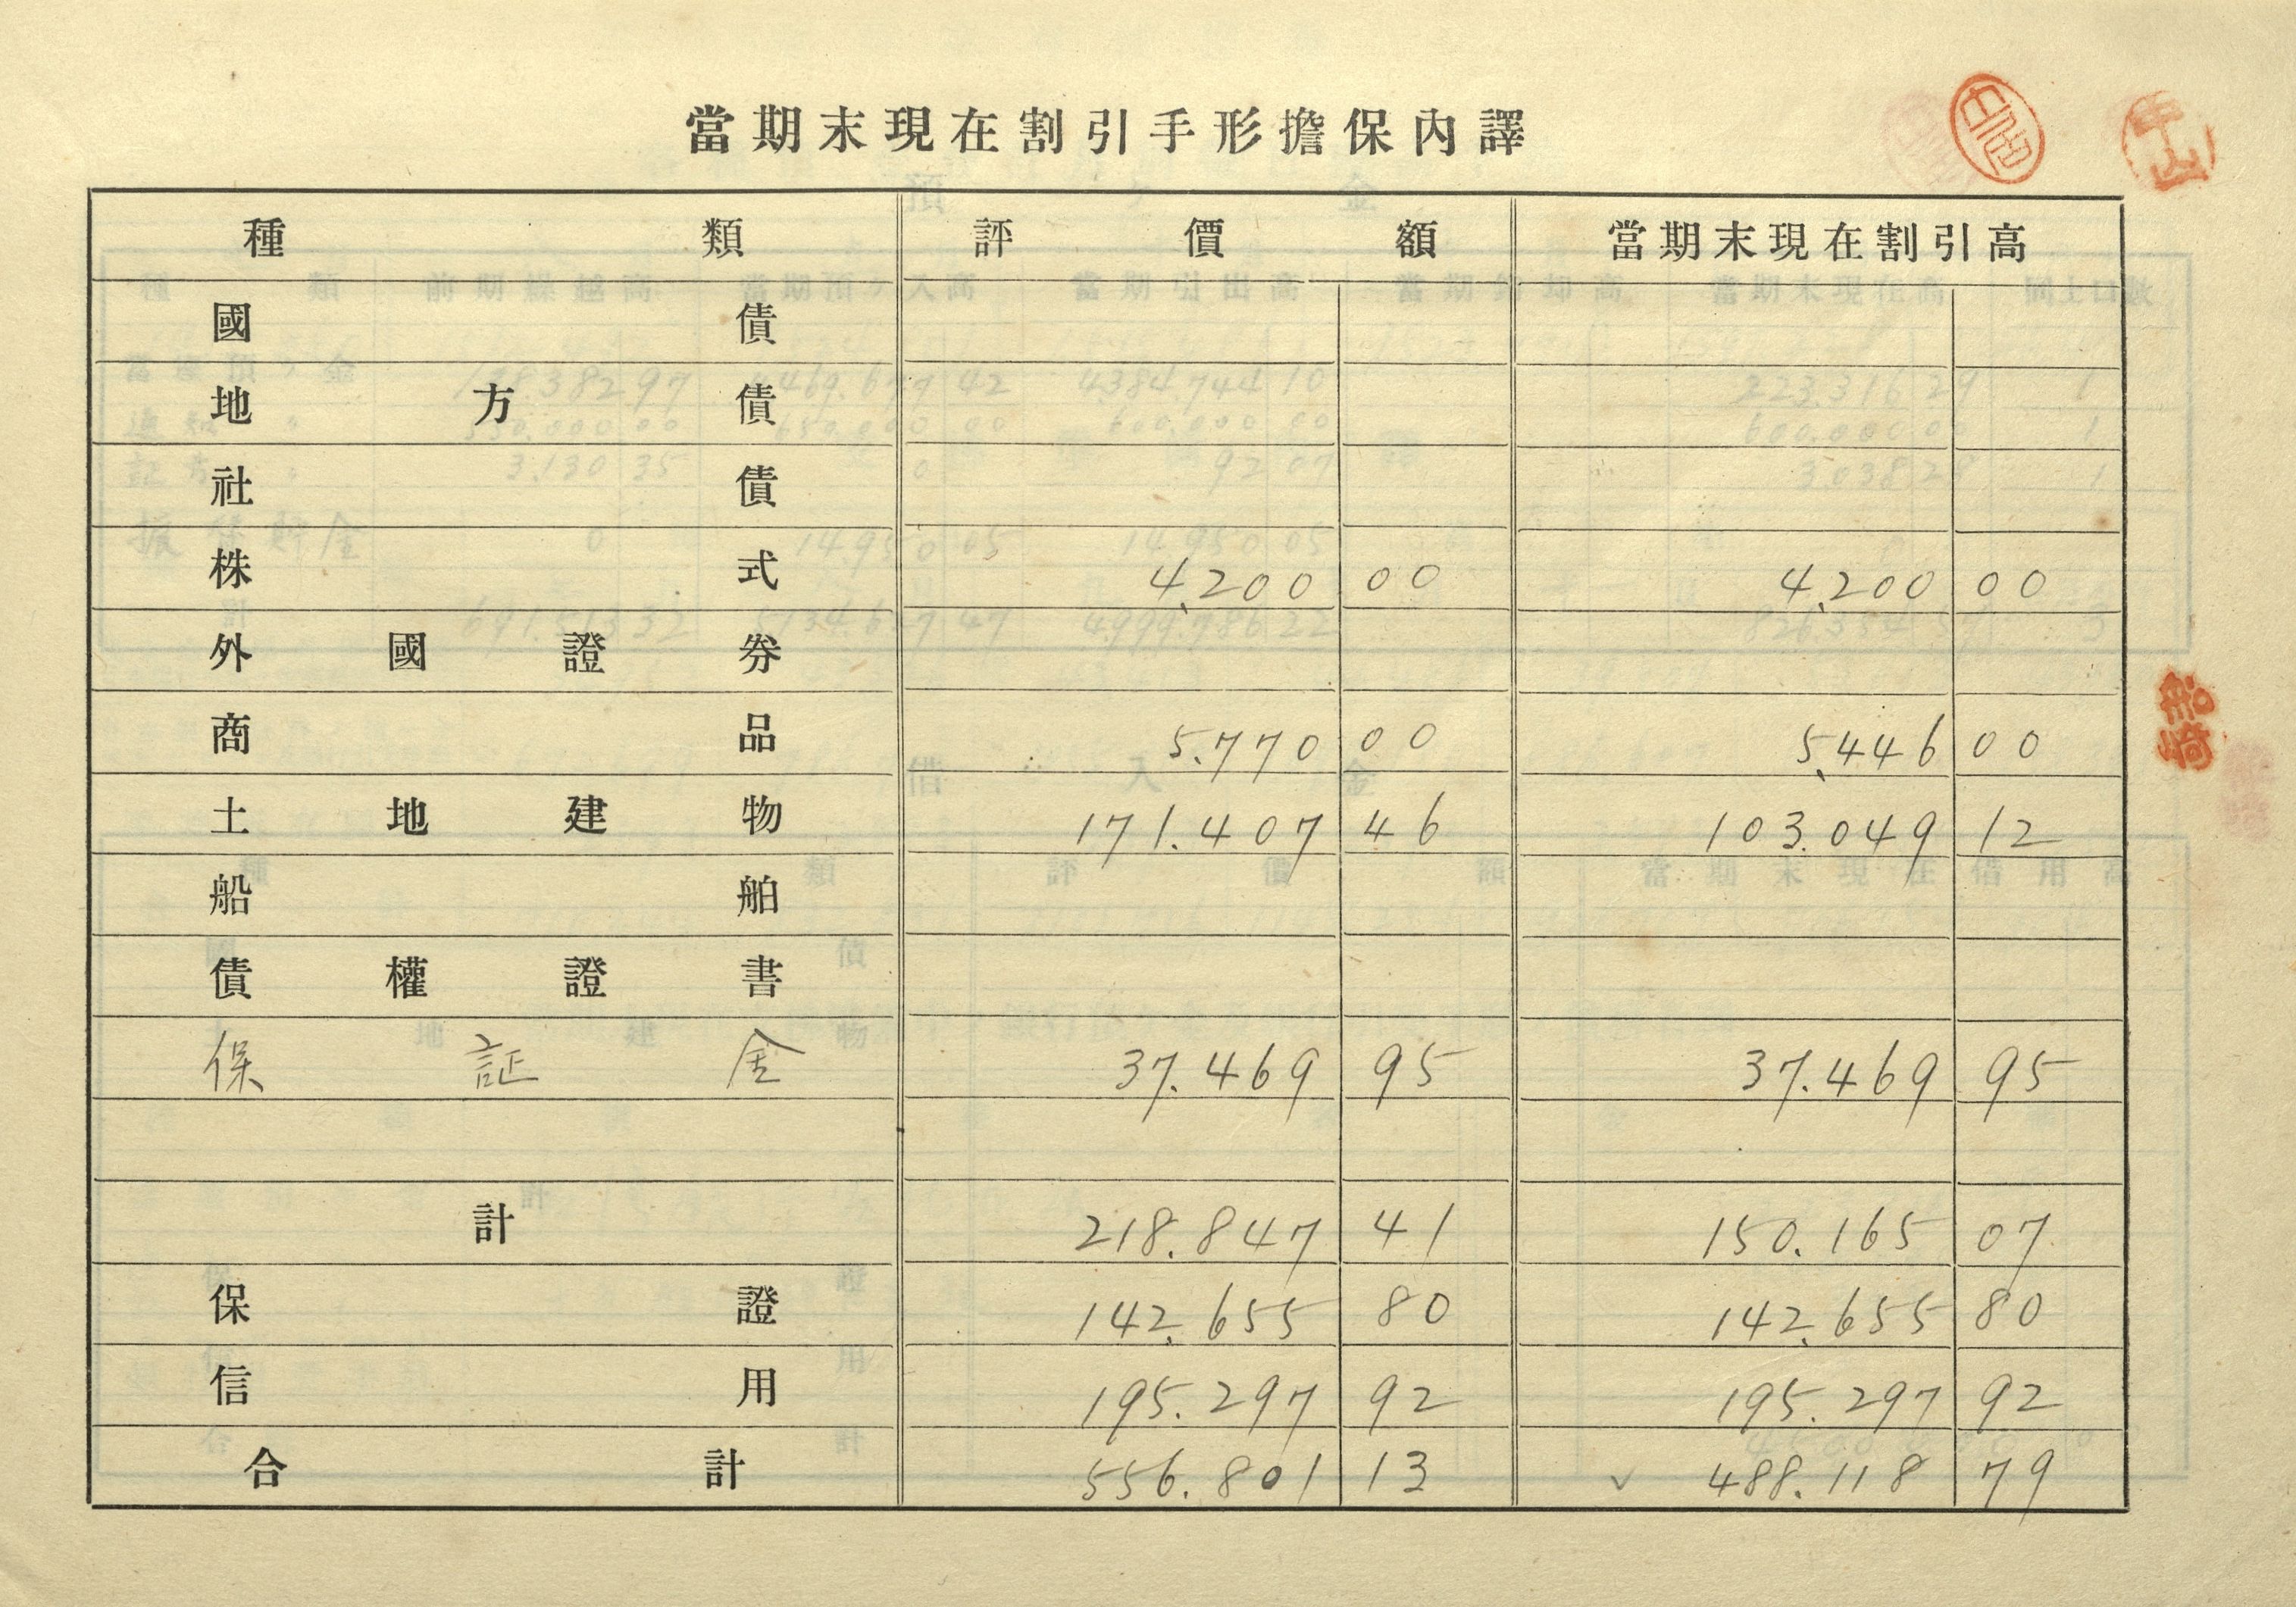 當期末現在割引手形擔保內譯
種類 評價額 當期末現在割引高
國債
地方債
社債
株式 4.200 00 4.200 00
外國證券
商品 5.770 00 5.446 00
土地建物 171.407 46 103.049 12
船舶
債權證書
保証金 37.469 95 37.469 95
計 218.847 41 150.165 07
保證 142.655 80 142.655 80
信用 195.297 92 195.297 92
合計 556.801 13 ✓ 488.118 79